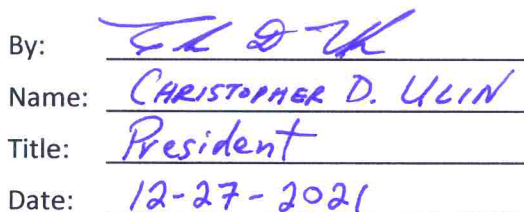 By:
Name: CHRISTOPHER D. ULIN
Title: President
Date: 12-27-2021